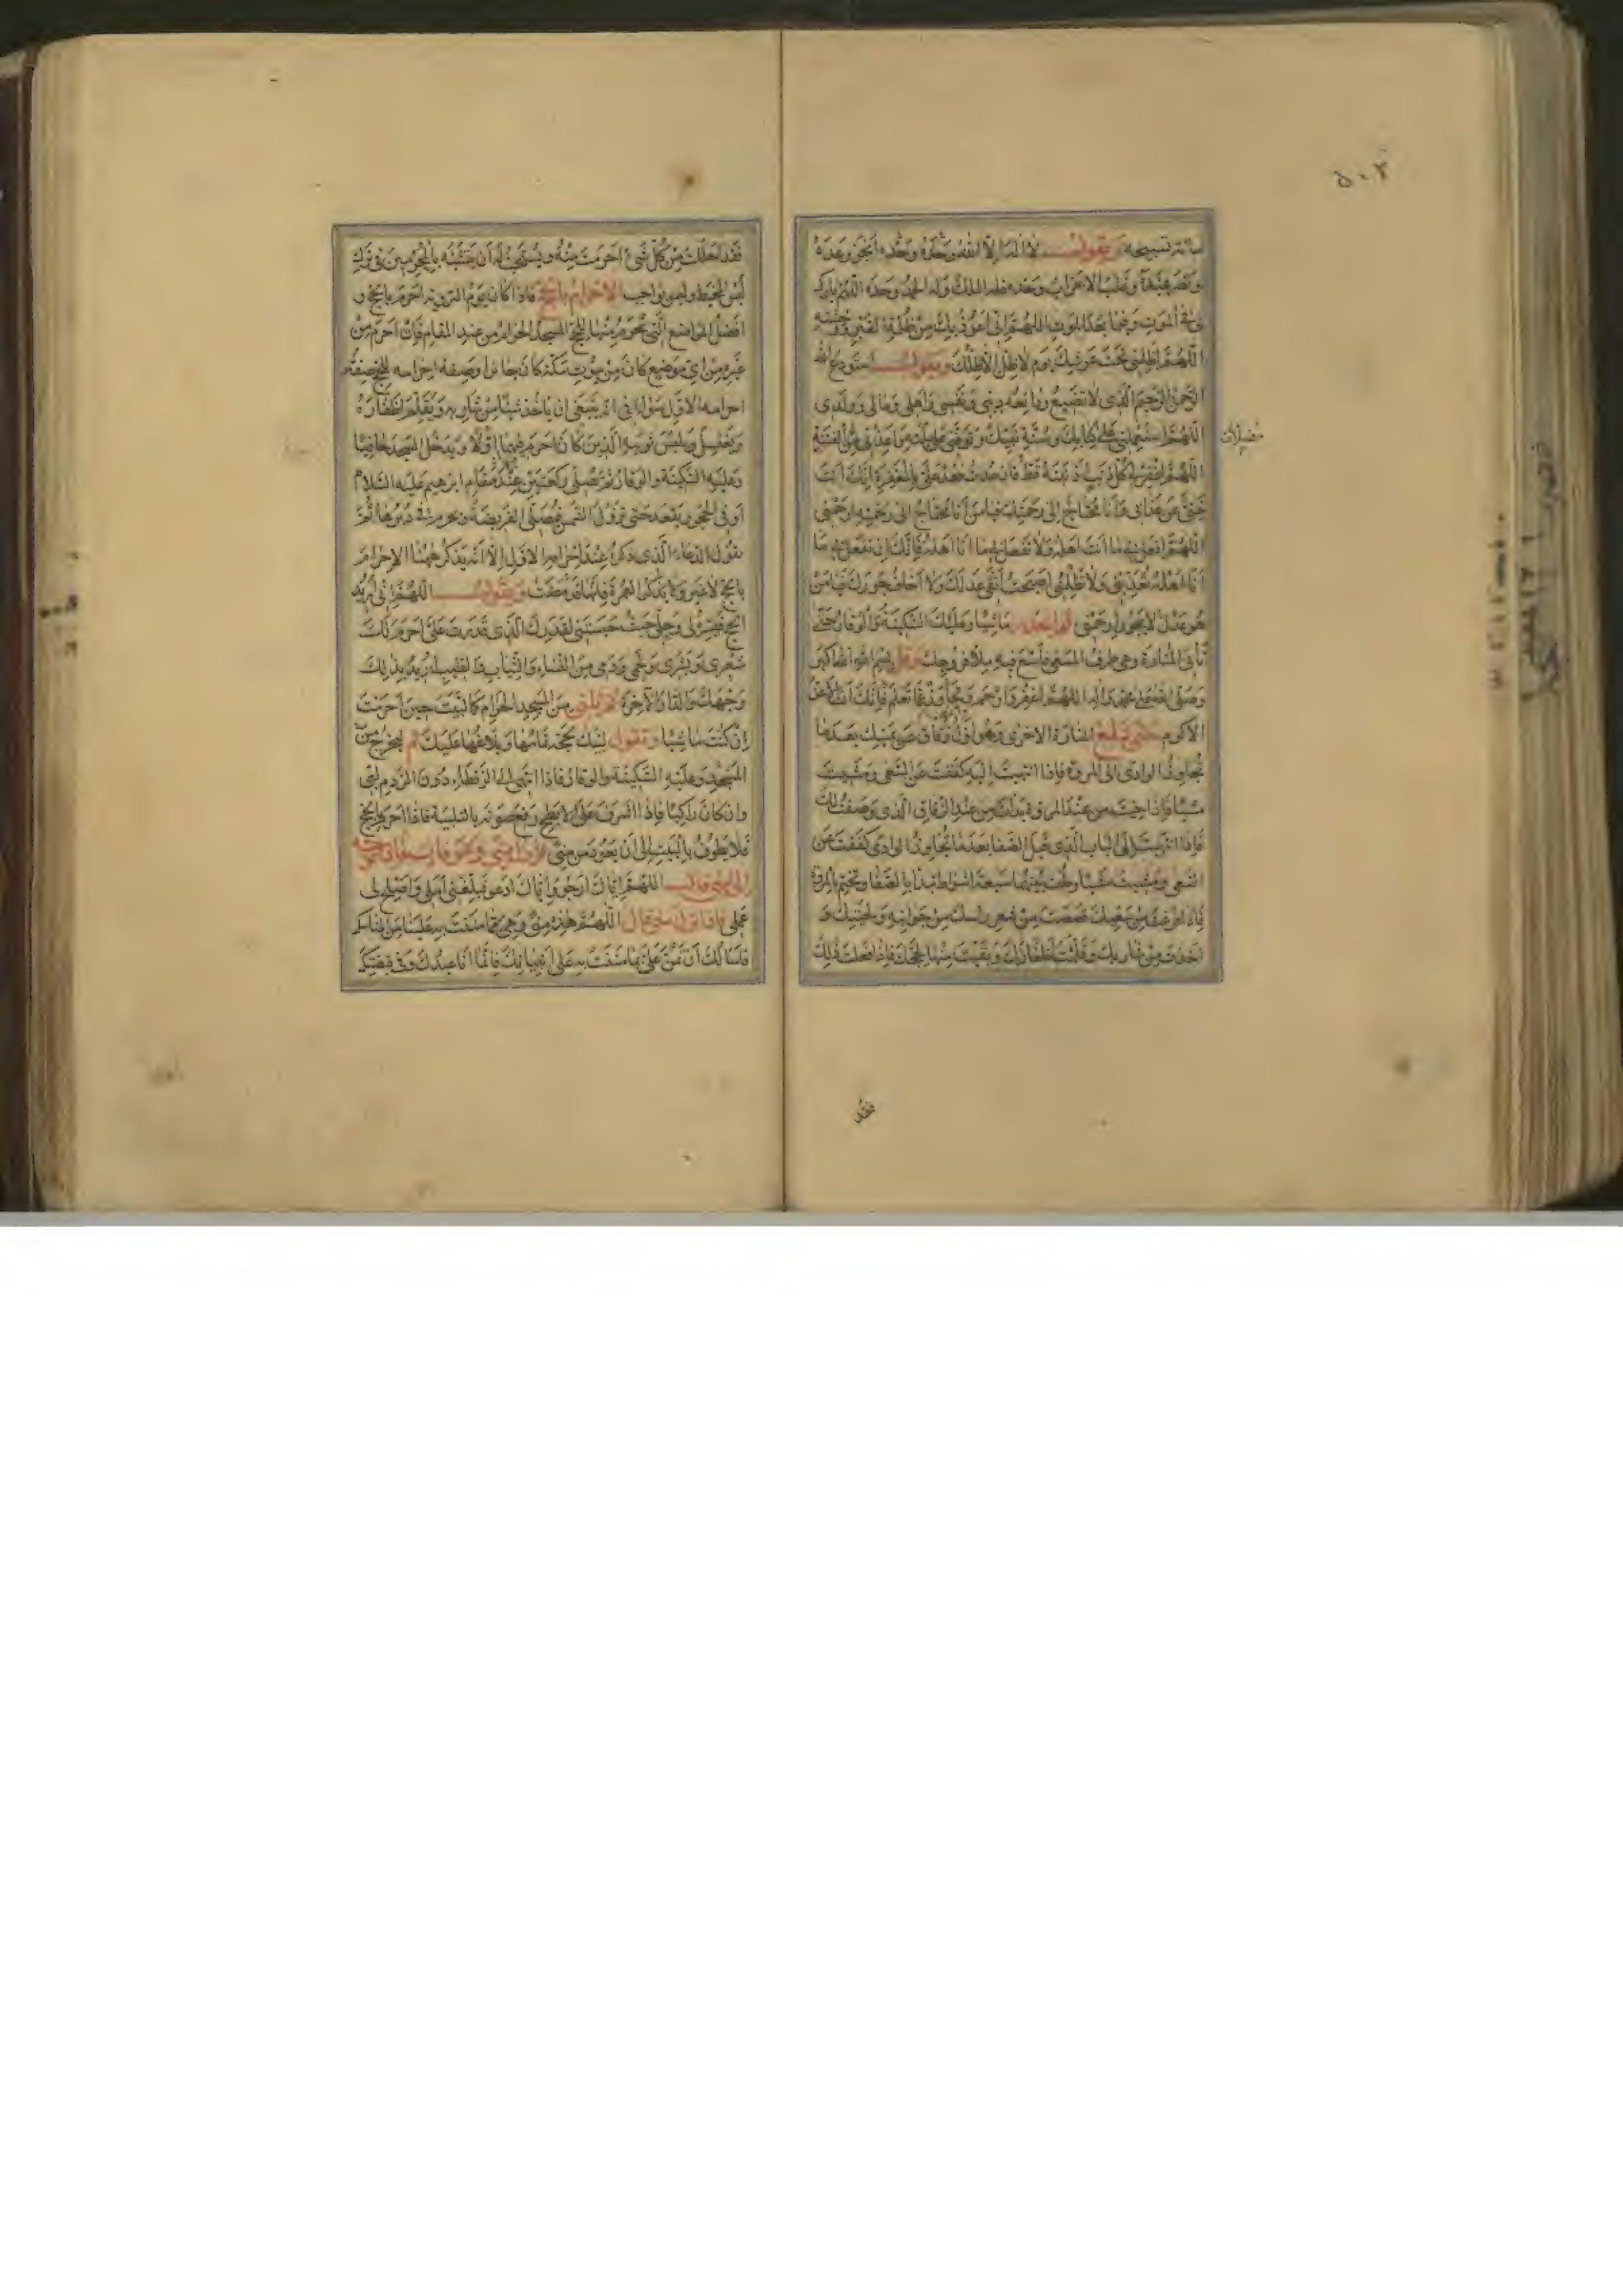 مائة تسبيحة وتقول لا اله الا الله وحده وحده انجز وعده
ونصر عبده وغلب الاحزاب وحده فله الملك وله الحمد وحده اللهم بارك
لى فى الموت وفيما بعد الموت اللهم انى اعوذ بك من ظلمة القبر ووحشته
اللهم اظلنى تحت عرشك يوم لا ظل الا ظلك وتقول استودع الله
الرحمن الرحيم الذى لا تضيع ودائعه دينى ونفسى واهلى ومالى وولدى
اللهم استعملنى على كتابك وسنة نبيك وتوفنى على ملته واعذنى من الفتنة
اللهم اغفر لى كل ذنب اذنبته قط فان عدت فعد على بالمغفرة انك انت
غنى عن عذابى وانا محتاج الى رحمتك فيا من انا محتاج الى رحمته ارحمنى
اللهم افعل بى ما انت اهله ولا تفعل بى ما انا اهله فانك ان تفعل بى ما
انا اهله تعذبنى ولا تظلمنى اصبحت اتقى عدلك ولا اخاف جورك فيا من
هو عدل لا يجور ارحمنى ثم انحدر ماشيا وعليك السكينة والوقار حتى
تأتى المنارة وهى طرف المسعى فاسع فيه ملأ فروجك وقل بسم الله الله اكبر
وصلى الله على محمد واله اللهم اغفر وارحم وتجاوز عما تعلم فانك انت الاعز
الاكرم حتى تبلغ المنارة الاخرى وهو اول زقاق عن يمينك بعد ما
تجاوز الوادى الى المروة فاذا انتهيت اليه كففت عن السعى ومشيت
مشيا فاذا جئت من عند المروة بدأت من عند الزقاق الذى وصفت لك
فاذا انتهيت الى الباب الذى قبل الصفا بعد ما تجاوز الوادى كففت عن
السعى ومشيت مشيا وطف بينهما سبعة اشواط تبدأ بالصفا وتختم بالمروة
فاذا فرغت من سعيك قصصت من شعر راسك من جوانبه ولحيتك و
اخذت من شاربك وقلمت اظفارك وبقيت منها لحجك فاذا فعلت ذلك
فقد
فقد احللت من كل شئ احرمت منه ويستحب له ان يتشبه بالمحرمين فى ترك
لبس المخيط وليس بواجب الاحرام بالحج فاذا كان يوم التروية احرم بالحج و
افضل المواضع التى يحرم منها للحج المسجد الحرام من عند المقام فان احرم من
غيره من اى موضع كان من بيوت مكة كان جائزا وصفة احرامه للحج صفة
احرامه الاول سواء فى انه ينبغى ان ياخذ شيئا من شاربه ويقلم اظفاره
ويغتسل ويلبس ثوبيه الذين كان احرم فيهما اولا ويدخل المسجد حافيا
وعليه السكينة والوقار ثم يصلى ركعتين عند مقام ابرهيم عليه السلام
او فى الحجر ويقعد حتى تزول الشمس فيصلى الفريضة ويحرم فى دبرها ثم
يقول الدعاء الذى ذكره عند احرامه الاول الا انه يذكر ههنا الاحرام
بالحج لا غير ولا يذكر العمرة فانها قد مضت ويقول اللهم انى اريد
الحج فيسره لى وحلنى حيث حبستنى لقدرك الذى قدرت على احرم لك
شعرى وبشرى ولحمى ودمى من النساء والثياب والطيب اريد بذلك
وجهك والدار الاخرة ثم يلبى من المسجد الحرام كما لبيت حين احرمت
ان كنت ماشيا وتقول لبيك بحجة تمامها وبلاغها عليك ثم ليخرج من
المسجد وعليه السكينة والوقار فاذا انتهى الى الرقطاء دون الردم لبى
وان كان راكبا فاذا اشرف على الابطح رفع صوته بالتلبية فاذا احرم بالحج
فلا يطوف بالبيت الى ان يعود من منى
الى منى قال اللهم اياك ارجو واياك ادعو فبلغنى املى واصلح لى
عملى فاذا نزل منى قال اللهم هذه منى وهى مما مننت به علينا من المناسك
فاسألك ان تمن على بما مننت به على انبيائك فانما انا عبدك وفى قبضتك